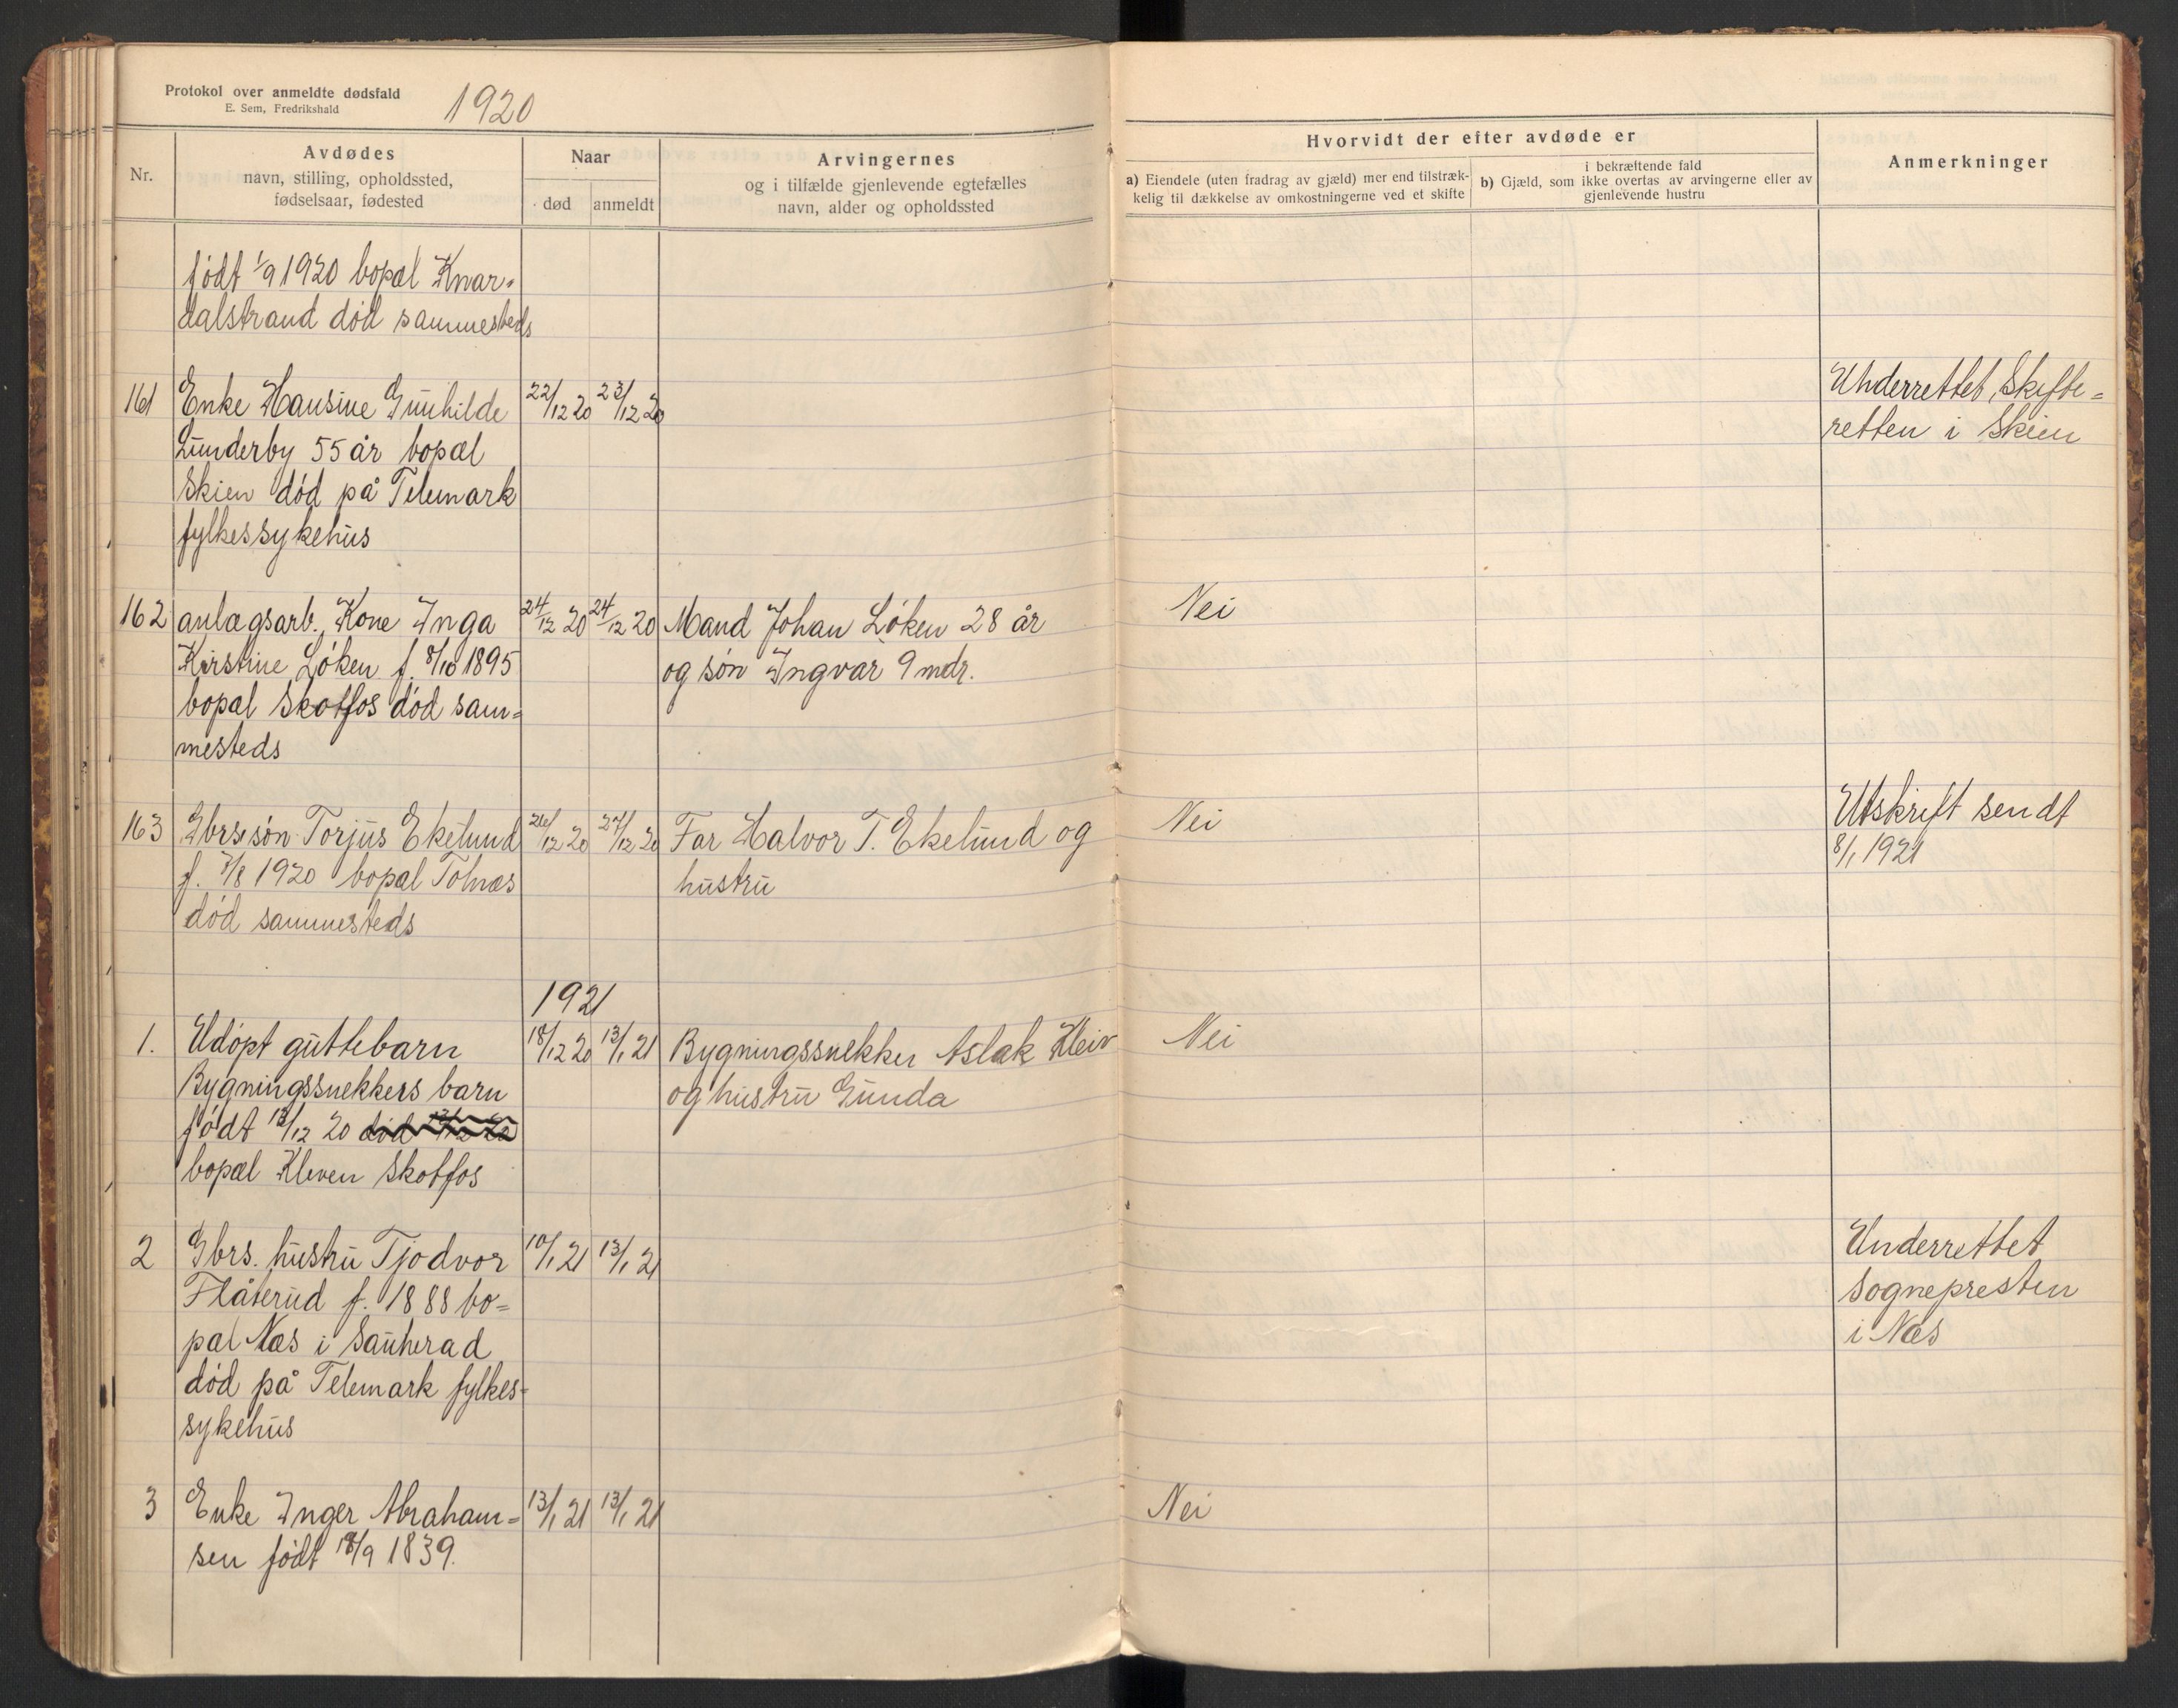 Protokol over anmeldte dødsfald
E. Sem, Fredrikshald
1920
Nr.
Avdødes
navn, stilling, opholdssted,
fødselsaar, fødested
Naar
død
anmeldt
Arvingernes
og i tilfælde gjenlevende egtefælles
navn, alder og opholdssted
Hvorvidt der efter avdøde er
a) Eiendele (uten fradrag av gjæld) mer end tilstræk-
kelig til dækkelse av omkostningerne ved et skifte
i bekræftende fald
b) Gjæld, som ikke overtas av arvingerne eller av
gjenlevende hustru
Anmerkninger
født 1/9 1920 bopæl Knar-
dalstrand død sammesteds
161 Enke Hansine Gunhilde 22/12 20 23/12 20 Underrettet Skifte=
Lunderby 55 år bopæl retten i Skien
Skien død på Telemark
fylkessykehus
162 anlægsarb. Kone Inga 24/12 20 24/12 20 Mand Johan Løken 28 år Nei
Kirstine Løken f. 8/10 1895 og søn Ingvar 9 mdr.
bopæl Skotfos død sam=
mesteds
163 Gbrs. søn Torjus Ekelund 26/12 20 27/12 20 Far Halvor T. Ekelund og Nei Utskrift sendt
f. 7/8 1920 bopæl Tolnæs hustru 8/1 1921
død sammesteds
1921
1. Udøpt guttebarn 18/12 20 13/1 21 Bygningssnekker Aslak Kleiv Nei
Bygningssnekkers barn og hustru Gunda
født 13/12 20 død
bopæl Kleven Skotfos
2 Gbrs. hustru Tjodvor 10/1 21 13/1 21 Underrettet
Flåterud f. 1888 bo= Sognepresten
pæl Næs i Sauherad i Næs
død på Telemark fylkes-
sykehus
3 Enke Inger Abraham= 13/1 21 13/1 21 Nei
sen født 18/9 1839.